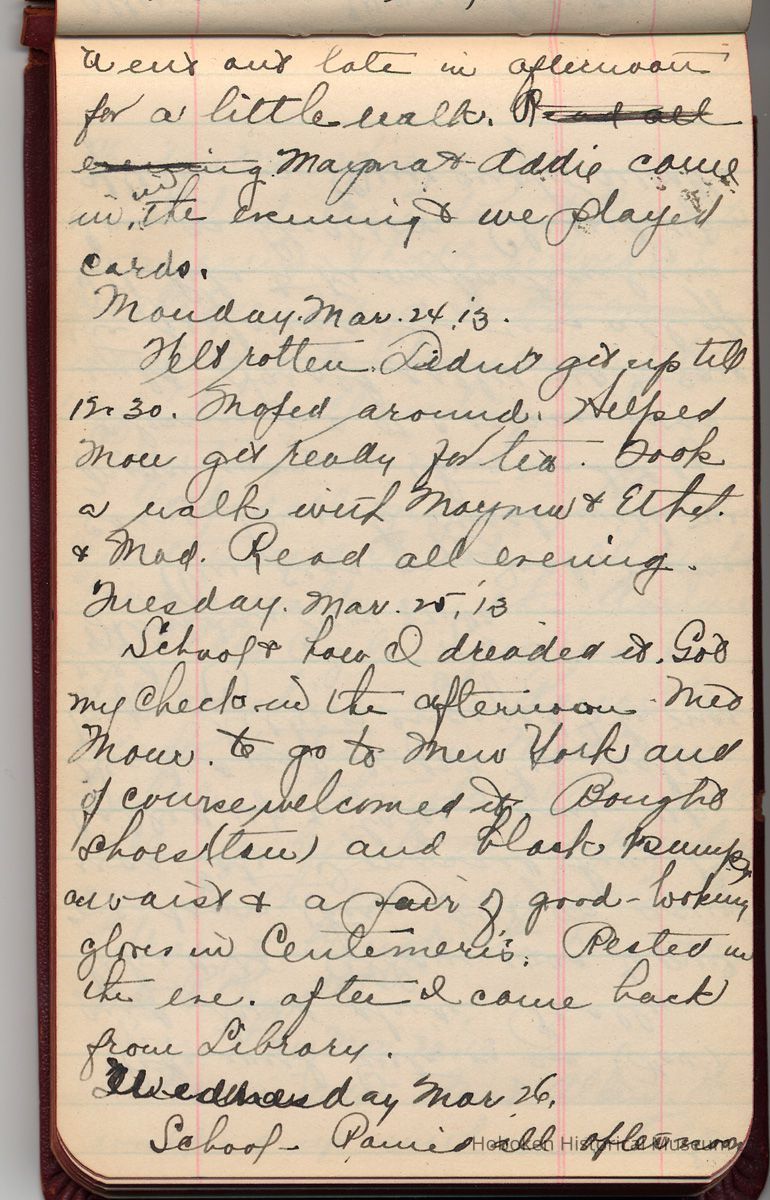 Went out late in afternoon
for a little walk. Read all
evening Mayma & Addie came
in in the evening & we played
cards.
Monday. Mar. 24, '13.
Felt rotten. Didn't get up till
12:30. Mosed around. Helped
Mom get ready for tea. Took
a walk with Mayme & Ethel.
& Mad. Read all evening.
Tuesday. Mar. 25, '13
School & how I dreaded it. Got
my check in the afternoon. Met
Mom. to go to New York and
of course welcomed it. Bought
shoes (tan) and black pumps,
a waist & a pair of good-looking
gloves in Centemeri's. Rested in
the eve. after I came back
from Library.
Wednesday Mar 26.
School - Rained all afternoon
Hoboken Historical Museum